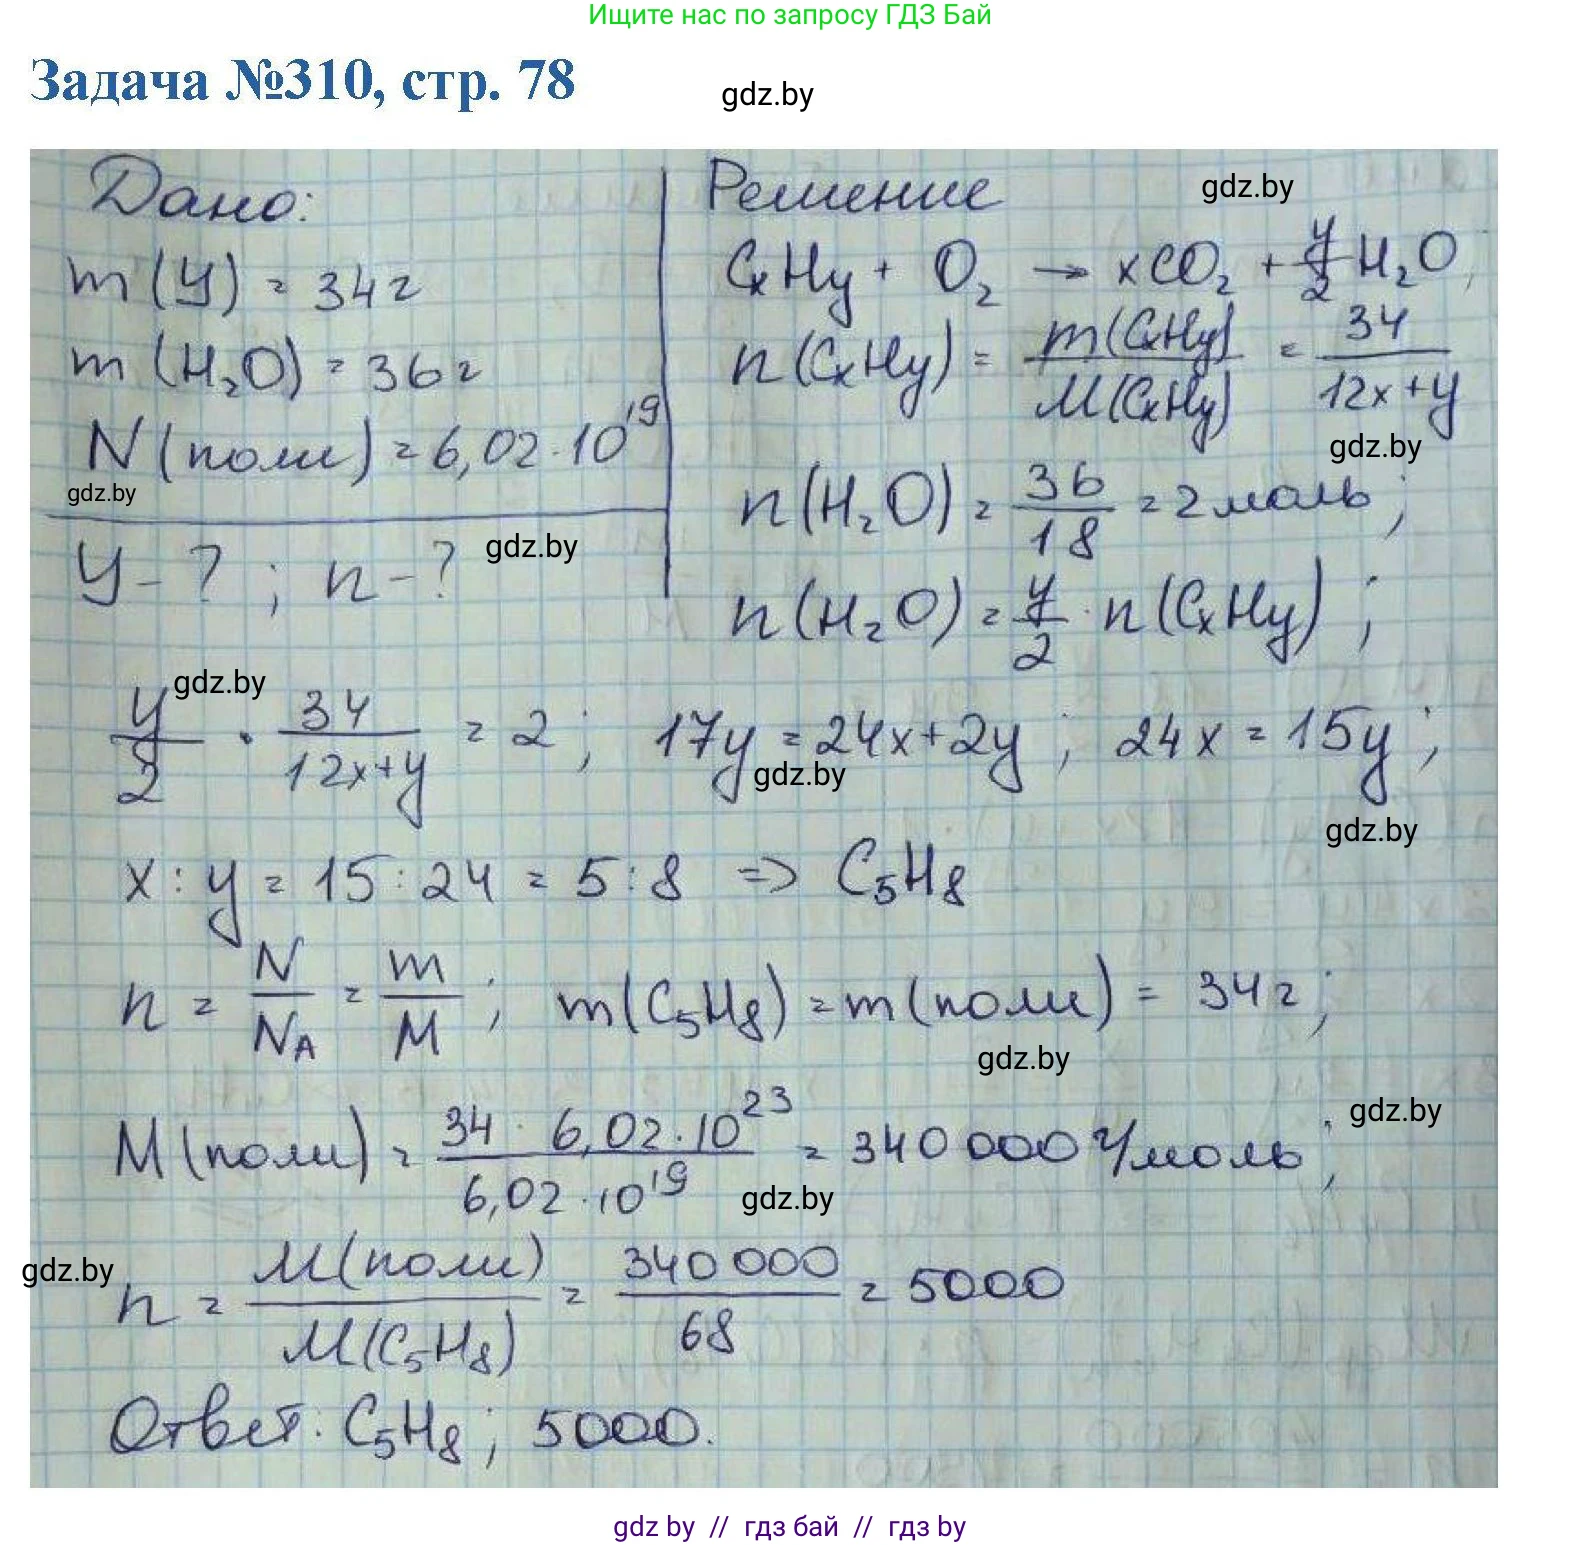 Ищите нас по запросу ГДЗ Бай
Задача №310, стр. 78
gdz.by
Дано:
m(У) = 34г
m(H₂O) = 36г
N(поли) = 6,02·10¹⁹
gdz.by
У-? ; n-?
gdz.by
Решение
gdz.by
CxHy + O₂ → xCO₂ + y/2 H₂O;
n(CxHy) = m(CxHy)/M(CxHy) = 34/12x+y
gdz.by
n(H₂O) = 36/18 = 2 моль;
n(H₂O) = y/2 · n(CxHy);
gdz.by
y/2 · 34/12x+y = 2; 17y = 24x+2y; 24x = 15y;
gdz.by
gdz.by
x : y = 15 : 24 = 5 : 8 => C₅H₈
n = N/NA = m/M; m(C₅H₈) = m(поли) = 34г;
gdz.by
gdz.by
M(поли) = 34 · 6,02·10²³/6,02·10¹⁹ = 340 000 г/моль;
gdz.by
gdz.by
n = M(поли)/M(C₅H₈) = 340 000/68 = 5000
Ответ: C₅H₈; 5000.
gdz by // гдз бай // гдз by